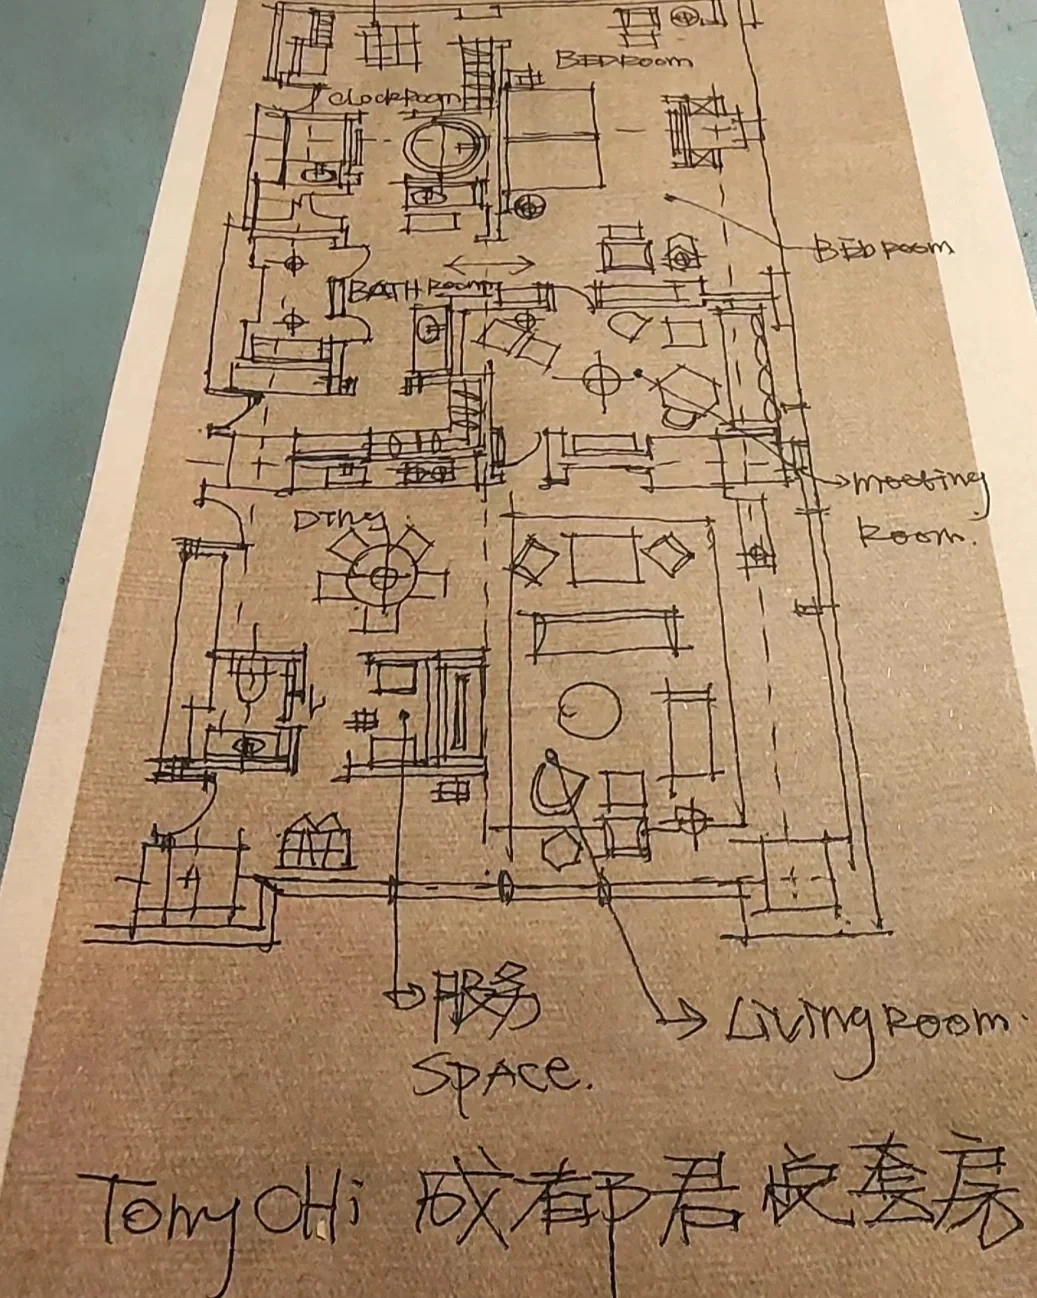 BEDROOM
CLOCKROOM
BEDROOM
BATHROOM
MEETING
ROOM.
DING
服务
SPACE.
LIVINGROOM.
TONY CHI 成都君悦套房